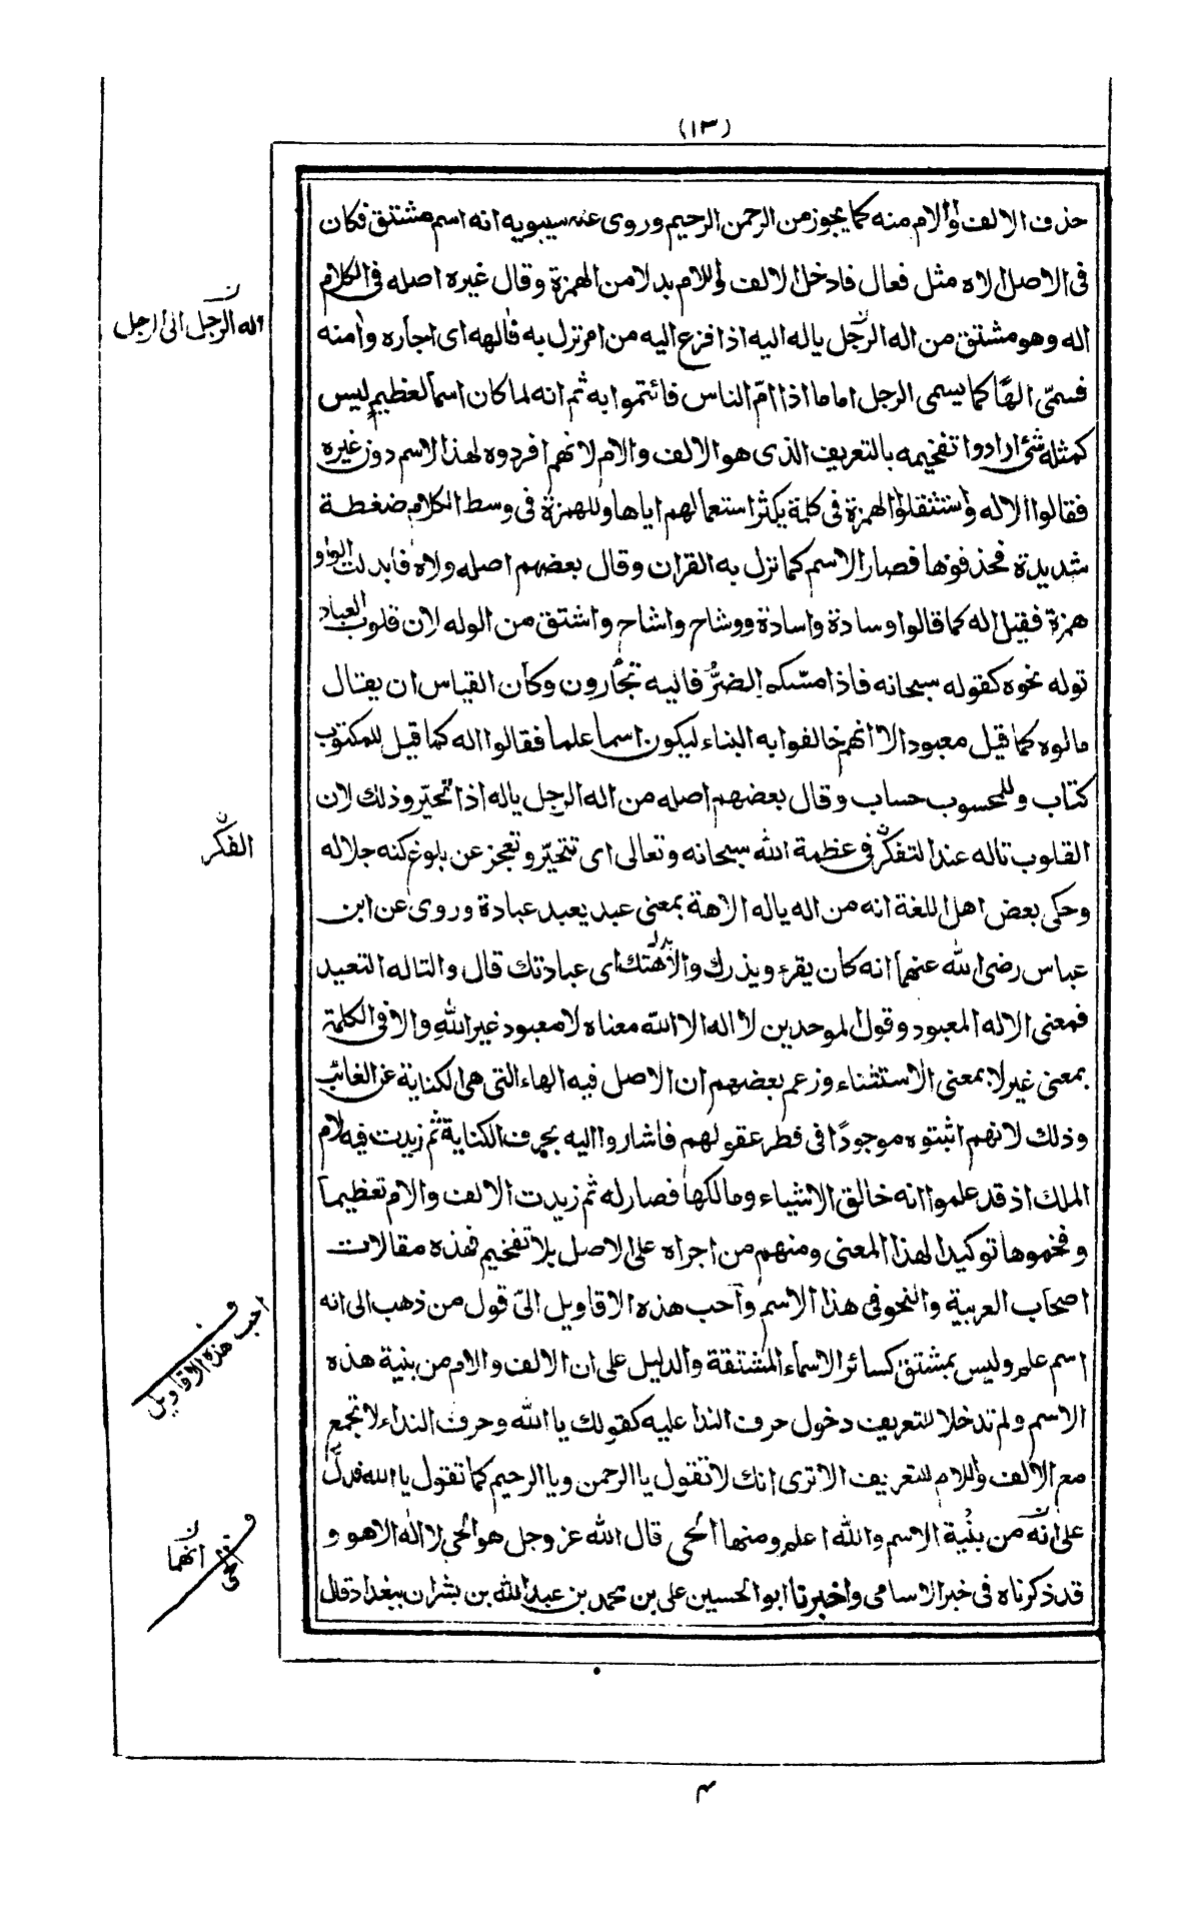 (١٣)
حذف الالف والام منه كما يجوز من الرحمن الرحيم وروى عنه سيبويه انه اسم مشتق فكان
فى الاصل الاه مثل فعال فادخل الالف واللام بدلا من الهمزة وقال غيره اصله فى الكلام
اله وهو مشتق من اله الرجل ياله اليه اذا فزع اليه من امر نزل به فالهه اى اجاره وامنه
فسمّى الهًا كما يسمى الرجل اماما اذا امّ الناس فائتموا به ثم انه لما كان اسما لعظيم ليس
كمثله شئ ارادوا تفخيمه بالتعريف الذى هو الالف والام لانهم افردوه لهذا الاسم دون غيره
فقالوا الاله واستثقلوا الهمزة فى كلمة يكثر استعمالهم اياها وللهمزة فى وسط الكلام ضغطة
شديدة فحذفوها فصار الاسم كما نزل به القران وقال بعضهم اصله ولاه فابدلت الواو
همزة فقيل اله كما قالوا وسادة واسادة ووشاح واشاح واشتق من الوله لان قلوب العباد
توله نحوه كقوله سبحانه فاذا مسّكم الضرُّ فاليه تجأرون وكان القياس ان يقال
مالوه كما قيل معبود الا انهم خالفوا به البناء ليكون اسما علما فقالوا اله كما قيل للمكتوب
كتاب وللمحسوب حساب وقال بعضهم اصله من اله الرجل ياله اذا تحيّر وذلك لان
القلوب تاله عند التفكّر فى عظمة الله سبحانه وتعالى اى تتحيّر وتعجز عن بلوغ كنه جلاله
وحكى بعض اهل اللغة انه من اله ياله الاهة بمعنى عبد يعبد عبادة وروى عن ابن
عباس رضى الله عنهما انه كان يقرء ويذرك والاهتك اى عبادتك قال والتاله التعبد
فمعنى الاله المعبود وقول الموحدين لا اله الا الله معناه لا معبود غير الله والا فى الكلمة
بمعنى غير لا بمعنى الاستثناء وزعم بعضهم ان الاصل فيه الهاء التى هى الكناية عن الغائب
وذلك لانهم اثبتوه موجودًا فى فطر عقولهم فاشاروا اليه بحرف الكناية ثم زيدت فيه لام
الملك اذ قد علموا انه خالق الاشياء ومالكها فصار له ثم زيدت الالف والام تعظيما
وفخموها توكيدا لهذا المعنى ومنهم من اجراه على الاصل بلا تفخيم فهذه مقالات
اصحاب العربية والنحو فى هذا الاسم وأحب هذه الاقاويل الىّ قول من ذهب الى انه
اسم علم وليس بمشتق كسائر الاسماء المشتقة والدليل على ان الالف والام من بنية هذه
الاسم ولم تدخلا للتعريف دخول حرف الندا عليه كقولك يا الله وحرف النداء لا تجمع
مع الالف واللام للتعريف الا ترى انك لا تقول يا الرحمن ويا الرحيم كما تقول يا الله فدلّ
على انّه من بنية الاسم والله اعلم ومنها الحى قال الله عز وجل هو الحى لا اله الا هو و
قد ذكرناه فى خبر الاسامى واخبرنا ابو الحسين على بن محمد بن عبد الله بن بشران ببغداد قال
ن
اله الرجل الى الرجل
ن
الفكّر
احب هذه الاقاويل
ن
انهما
الحى
م